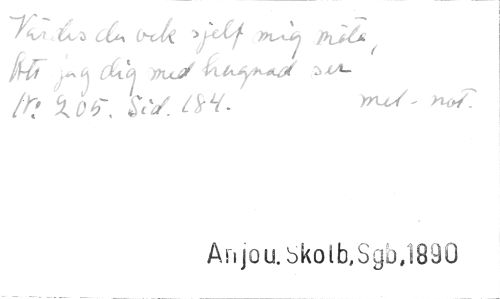 Värdes du ock sjelf mig möta,
Att jag dig med hugnad ser
No 205. Sid. 184. mel-not.
Anjou. Skolb, Sgb, 1890